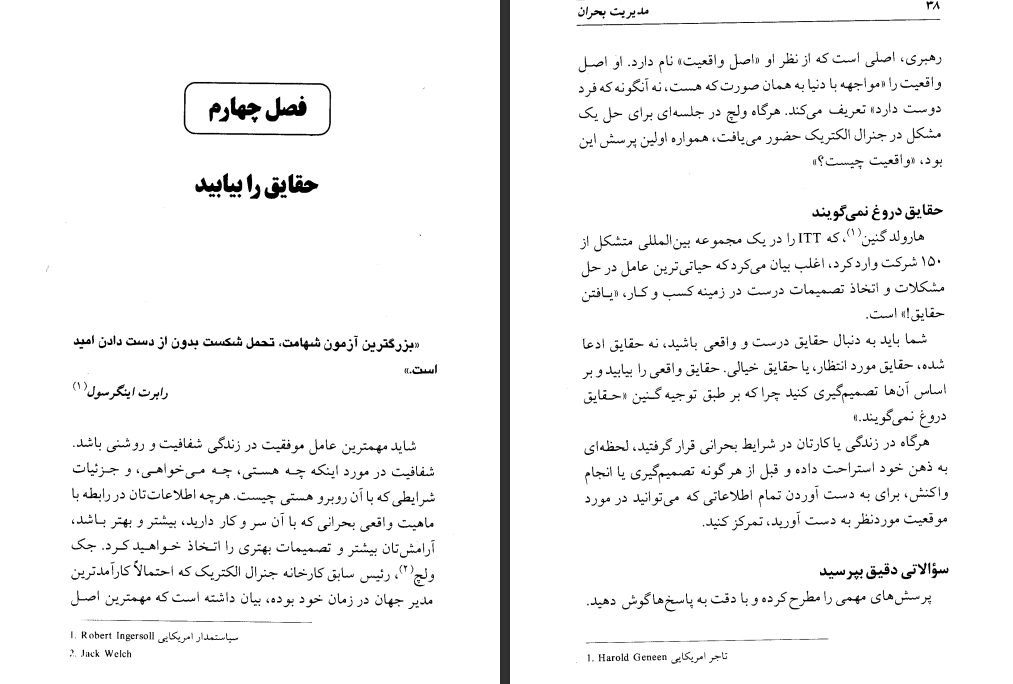 فصل چهارم
حقایق را بیابید
«بزرگترین آزمون شهامت، تحمل شکست بدون از دست دادن امید
است.»
رابرت اینگرسول(۱)
شاید مهمترین عامل موفقیت در زندگی شفافیت و روشنی باشد.
شفافیت در مورد اینکه چه هستی، چه می‌خواهی، و جزئیات
شرایطی که با آن روبرو هستی چیست. هرچه اطلاعات‌تان در رابطه با
ماهیت واقعی بحرانی که با آن سر و کار دارید، بیشتر و بهتر باشد،
آرامش‌تان بیشتر و تصمیمات بهتری را اتخاذ خواهید کرد. جک
ولچ(۲)، رئیس سابق کارخانه جنرال الکتریک که احتمالاً کارآمدترین
مدیر جهان در زمان خود بوده، بیان داشته است که مهمترین اصل
1. Robert Ingersoll سیاستمدار امریکایی
2. Jack Welch
۳۸ مدیریت بحران
رهبری، اصلی است که از نظر او «اصل واقعیت» نام دارد. او اصل
واقعیت را «مواجهه با دنیا به همان صورت که هست، نه آنگونه که فرد
دوست دارد» تعریف می‌کند. هرگاه ولچ در جلسه‌ای برای حل یک
مشکل در جنرال الکتریک حضور می‌یافت، همواره اولین پرسش این
بود، «واقعیت چیست؟»
حقایق دروغ نمی‌گویند
هارولد گنین(۱)، که ITT را در یک مجموعه بین‌المللی متشکل از
۱۵۰ شرکت وارد کرد، اغلب بیان می‌کرد که حیاتی‌ترین عامل در حل
مشکلات و اتخاذ تصمیمات درست در زمینه کسب و کار، «یافتن
حقایق!» است.
شما باید به دنبال حقایق درست و واقعی باشید، نه حقایق ادعا
شده، حقایق مورد انتظار، یا حقایق خیالی. حقایق واقعی را بیابید و بر
اساس آن‌ها تصمیم‌گیری کنید چرا که بر طبق توجیه گنین «حقایق
دروغ نمی‌گویند.»
هرگاه در زندگی یا کارتان در شرایط بحرانی قرار گرفتید، لحظه‌ای
به ذهن خود استراحت داده و قبل از هر گونه تصمیم‌گیری یا انجام
واکنش، برای به دست آوردن تمام اطلاعاتی که می‌توانید در مورد
موقعیت موردنظر به دست آورید، تمرکز کنید.
سؤالاتی دقیق بپرسید
پرسش‌های مهمی را مطرح کرده و با دقت به پاسخ‌ها گوش دهید.
1. Harold Geneen تاجر امریکایی